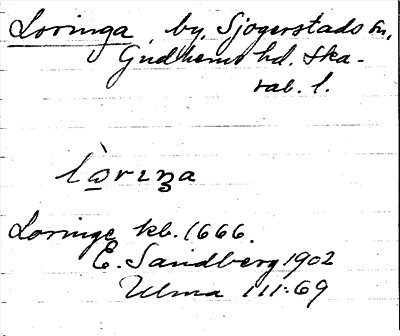 Loringa, by, Sjogerstads sn,
Gudhems hd. Ska-
rab. l.
lò̲rıꞑa
Loringe kb. 1666.
E. Sandberg 1902
Ulma 111:69